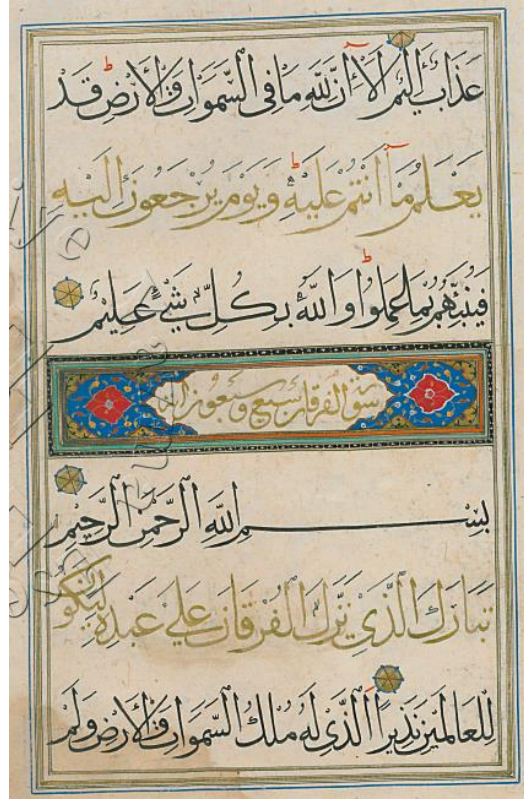 عَذَابٌ اَلِيمٌ اَلَآ اِنَّ لِلّٰهِ مَا فِي السَّمَوَاتِ وَالْاَرْضِ ط قَدْ
يَعْلَمُ مَآ اَنْتُمْ عَلَيْهِ ط وَيَوْمَ يُرْجَعُونَ اِلَيْهِ
فَيُنَبِّئُهُمْ بِمَا عَمِلُوا ط وَاللّٰهُ بِكُلِّ شَيْءٍ عَلِيمٌ
سورة الفرقان سبع وسبعون آية
بِسْمِ اللّٰهِ الرَّحْمٰنِ الرَّحِيمِ
تَبَارَكَ الَّذِي نَزَّلَ الْفُرْقَانَ عَلٰى عَبْدِهِ لِيَكُونَ
لِلْعَالَمِينَ نَذِيرًا الَّذِي لَهُ مُلْكُ السَّمَوَاتِ وَالْاَرْضِ وَلَمْ